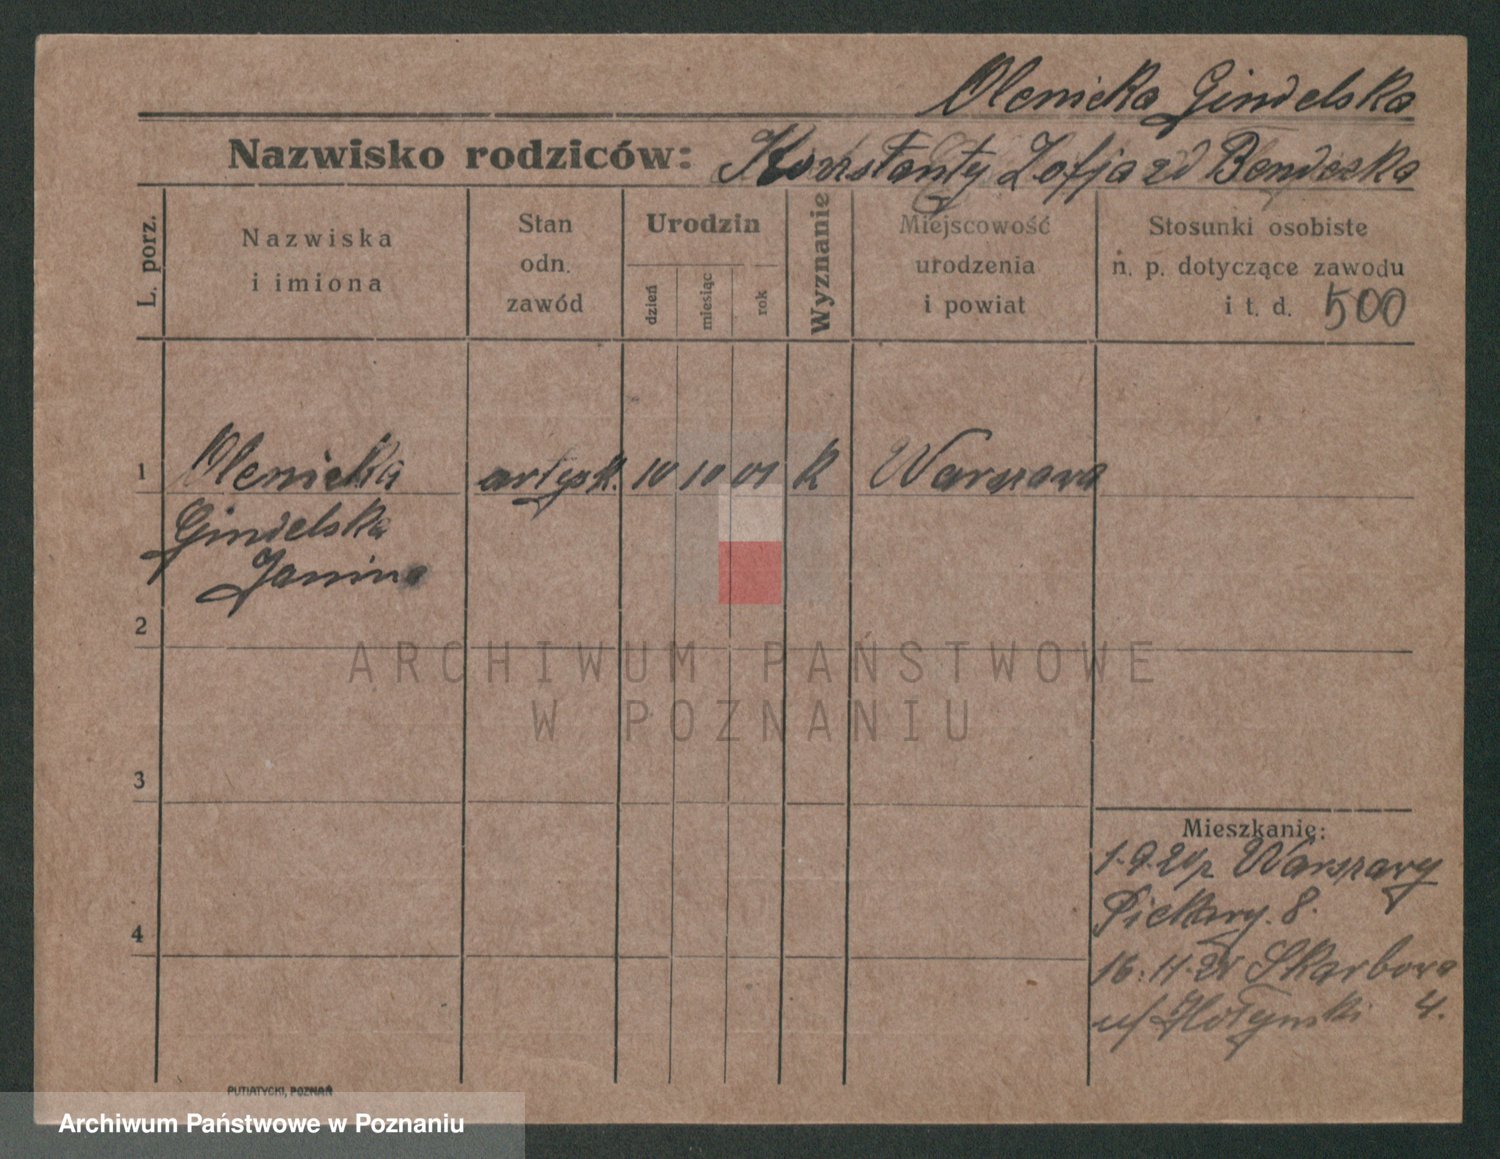 Olenicka Gindelska
Nazwisko rodziców: Konstanty Zofja zd Bendecka
L. porz.
Nazwiska
i imiona
Stan
odn.
zawód
Urodzin
dzień
miesiąc
rok
Wyznanie
Miejscowość
urodzenia
i powiat
Stosunki osobiste
n. p. dotyczące zawodu
i t. d. 500
1 Olenicka artystk. 10 10 01 k Warszawa
Gindelska
Janina
2
3
4
Mieszkanie:
1.9.21 z Warszawy
Piekary. 8.
16.11.21 Skarbowa
u/ Hołynski 4.
PUTIATYCKI, POZNAŃ
ARCHIWUM PAŃSTWOWE
W POZNANIU
Archiwum Państwowe w Poznaniu